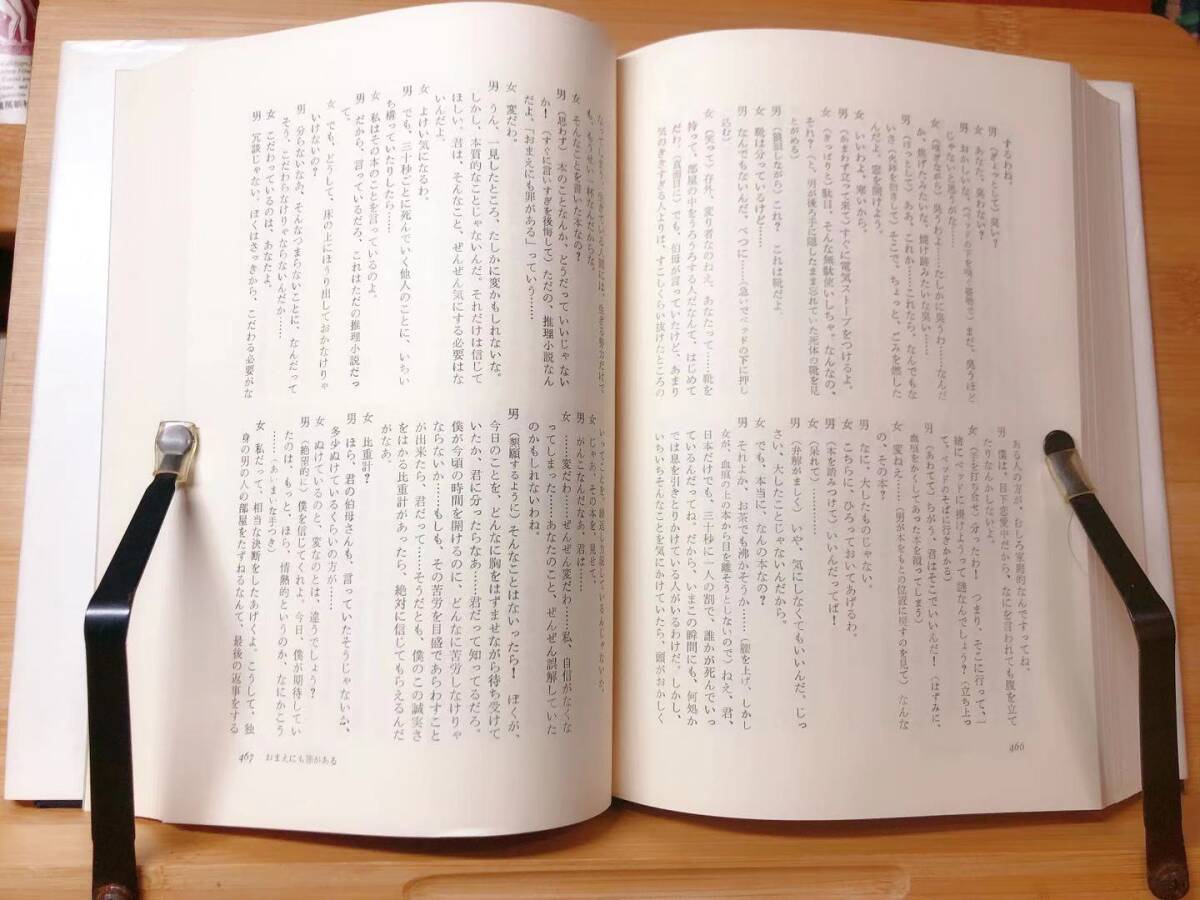 するわね。
男 (ぎくっとして) 臭い?
女 あなた、臭わない?
男 おかしいな。(ベッドの下を嗅ぐ姿勢で) まだ、臭うほど
じゃないと思うがな……
女 (嗅ぎながら) 臭うわよ……たしかに臭うわ……なんだ
か、焦げたみたいな、焼け跡みたいな臭い……
男 (ほっとして) ああ、これか……これなら、なんでもな
いさ (火鉢を指さして) そこで、ちょっと、ごみを燃した
んだよ。窓を開けよう。
女 いいわよ、寒いから。
男 (かまわず立って来て) すぐに電気ストーブをつけるよ。
女 (きっぱりと) 駄目、そんな無駄使いしちゃ。なんなの、
それ? (と、男が後ろ手に隠したまま忘れていた死体の靴を見
とがめる)
男 (狼狽しながら) これ? これは靴だよ。
女 靴は分っているけど……
男 なんでもないんだ、べつに……(急いでベッドの下に押し
込む)
女 (笑って) 存外、変り者なのねえ、あなたって……靴を
持って、部屋の中をうろうろする人だなんて、はじめて
だわ。(真面目に) でも、伯母が言っていたけど、あまり
気のききすぎる人よりは、すこしくらい抜けたところの
ある人の方が、むしろ家庭的なんですってね。
男 僕は、目下恋愛中だから、なにを言われても腹を立て
たりなんかしないよ。
女 (手を打ち合せ) 分ったわ! つまり、そこに行って、一
緒にベッドに掛けようって謎なんでしょう? (立ち上っ
て、ベッドのそばに行きかかる)
男 (あわてて) ちがう、君はそこでいいんだ! (はずみに、
血痕をかくしてあった本を蹴ってしまう)
女 変ねえ……(男が本をもとの位置に戻すのを見て) なんな
の、その本?
男 なに、大したものじゃない。
女 こちらに、ひろっておいてあげるわ。
男 (本を踏みつけて) いいんだってば!
女 (呆れて) ………
男 (弁解がましく) いや、気にしなくてもいいんだ。じっ
さい、大したことじゃないんだから。
女 でも、本当に、なんの本なの?
男 それよか、お茶でも沸かそうか……(腰を上げ、しかし
女が、血痕の上の本から目を離そうとしないので) ねえ、君、
日本だけでも、三十秒に一人の割で、誰かが死んでいっ
ているんだってね。だから、いまこの瞬間にも、何処か
では息を引きとりかけている人がいるわけだ。しかし、
いちいちそんなことを気にかけていたら、頭がおかしく
466
なってしまう。生きている人間には、生きる努力だけで、
も、もうせい一杯なんだからな。
女 そんなことを書いた本なの?
男 (思わず) 本のことなんか、どうだっていいじゃない
か! (すぐに言いすぎを後悔して) ただの、推理小説なん
だよ、「おまえにも罪がある」っていう……
女 変だわ。
男 うん、一見したところ、たしかに変かもしれないな。
しかし、本質的なことじゃないんだ。それだけは信じて
ほしい。君は、そんなこと、ぜんぜん気にする必要はな
いんだよ。
女 よけい気になるわ。
男 でも、三十秒ごとに死んでいく他人のことに、いちい
ち構っていたりしたら……
女 私はその本のことを言っているのよ。
男 だから、言っているだろ、これはただの推理小説だっ
て。
女 でも、どうして、床の上にほうり出しておかなけりゃ
いけないの?
男 分らないなあ、そんなつまらないことに、なんだって
そう、こだわらなけりゃならないんだか……
女 こだわっているのは、あなたよ。
男 冗談じゃない、ぼくはさっきから、こだわる必要がな
いってことを、繰返し力説しているんじゃないか。
女 じゃあ、その本を、見せて。
男 がんこなんだなあ、君は……
女 ……変だわ……ぜんぜん変だわ……私、自信がなくな
ってしまった……あなたのこと、ぜんぜん誤解していた
のかもしれないわね。
男 (懇願するように) そんなことはないったら! ぼくが、
今日のことを、どんなに胸をはずませながら待ち受けて
いたか、君に分ったらなあ……君だって知ってるだろ。
僕が今頃の時間を開けるのに、どんなに苦労しなけりゃ
ならないか……もしも、その苦労を目盛であらわすこと
が出来たら、君だって……そうだとも、僕のこの誠実さ
をはかる比重計があったら、絶対に信じてもらえるんだ
がなあ。
女 比重計?
男 ほら、君の伯母さんも、言っていたそうじゃないか、
多少ぬけているくらいの方が……
女 ぬけているのと、変なのとは、違うでしょう?
男 (絶望的に) 僕を信じてくれよ。今日、僕が期待してい
たのは、もっと、ほら、情熱的というのか、なにかこう
……(あいまいな手つき)
女 私だって、相当な決断をしたあげくよ。こうして、独
身の男の人の部屋をたずねるなんて、最後の返事をする
467 おまえにも罪がある